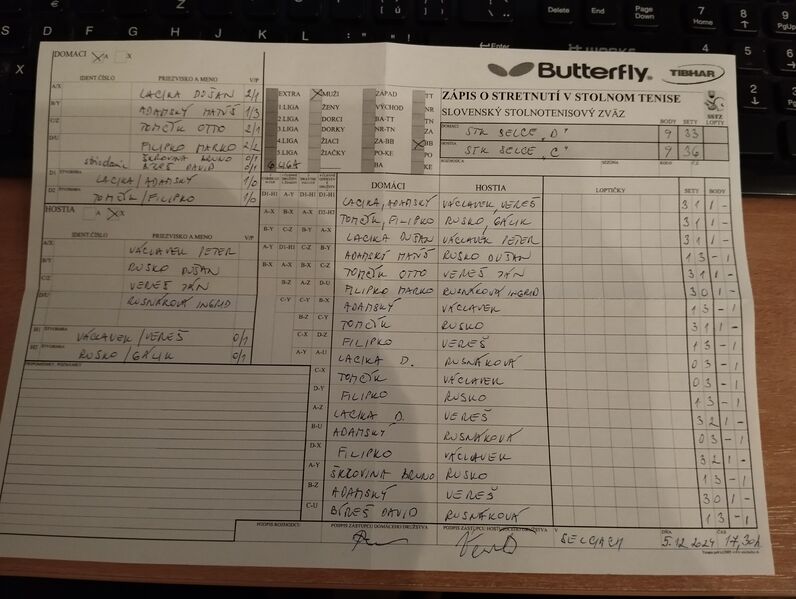 Delete
End
Page Down
7 Home
8
9 PgUp
Enter
Butterfly
TIBHAR
ZÁPIS O STRETNUTÍ V STOLNOM TENISE
SLOVENSKÝ STOLNOTENISOVÝ ZVÄZ
SSTZ
DOMACI STK SELCE "D" BODY 9 SETY 33 LOPTY
HOSTIA STK SELCE "C" 9 36
DOMACI A X
IDENT.ČÍSLO PRIEZVISKO A MENO V/P
A/X LACIKA DUŠAN 2/1
B/Y ADAMSKÝ MATÚŠ 1/3
C/Z TOMČÍK OTTO 2/1
D/U FILIPKO MARKO 2/2
striedanie ŠKROVINA BRUNO 0/1
BÍREŠ DAVID 0/1
D1 ŠTVORHRA LACIKA/ADAMSKÝ 1/0
D2 TOMČÍK/FILIPKO 1/0
HOSTIA A X
IDENT.ČÍSLO PRIEZVISKO A MENO V/P
A/X VÁCLAVEK PETER
B/Y RUSKO DUŠAN
C/Z VEREŠ JÁN
D/U RUSNÁKOVÁ INGRID
H1 ŠTVORHRA VÁCLAVEK/VEREŠ 0/1
H2 ŠTVORHRA RUSKO/GÁLIK 0/1
PRIPOMIENKY, POZNÁMKY
EXTRA MUŽI ZÁPAD TT
1.LIGA ŽENY VÝCHOD NR
2.LIGA DORCI BA-TT
3.LIGA DORKY NR-TN ZA
4.LIGA ŽIACI ZA-BB BB
5.LIGA ŽIAČKY PO-KE KE
DOMÁCI HOSTIA LOPTIČKY SETY BODY
LACIKA, ADAMSKÝ VÁCLAVEK, VEREŠ 3 1 1 -
TOMČÍK, FILIPKO RUSKO, GÁLIK 3 1 1 -
LACIKA DUŠAN VÁCLAVEK PETER 3 1 1 -
ADAMSKÝ MATÚŠ RUSKO DUŠAN 1 3 - 1
TOMČÍK OTTO VEREŠ JÁN 3 1 1 -
FILIPKO MARKO RUSNÁKOVÁ INGRID 3 0 1 -
ADAMSKÝ VÁCLAVEK 1 3 - 1
TOMČÍK RUSKO 3 1 1 -
FILIPKO VEREŠ 1 3 - 1
A-U LACIKA D. RUSNÁKOVÁ 0 3 - 1
C-X TOMČÍK VÁCLAVEK 0 3 - 1
D-Y FILIPKO RUSKO 1 3 - 1
A-Z LACIKA D. VEREŠ 3 2 1 -
B-U ADAMSKÝ RUSNÁKOVÁ 0 3 - 1
D-X FILIPKO VÁCLAVEK 3 2 1 -
A-Y ŠKROVINA BRUNO RUSKO 1 3 - 1
B-Z ADAMSKÝ VEREŠ 3 0 1 -
C-U BÍREŠ DAVID RUSNÁKOVÁ 1 3 - 1
PODPIS ROZHODCU PODPIS ZÁSTUPCU DOMÁCEHO DRUŽSTVA PODPIS ZÁSTUPCU HOSŤUJÚCEHO DRUŽSTVA V SELCIACH DŇA 5.12.2024 ČAS 17,30h